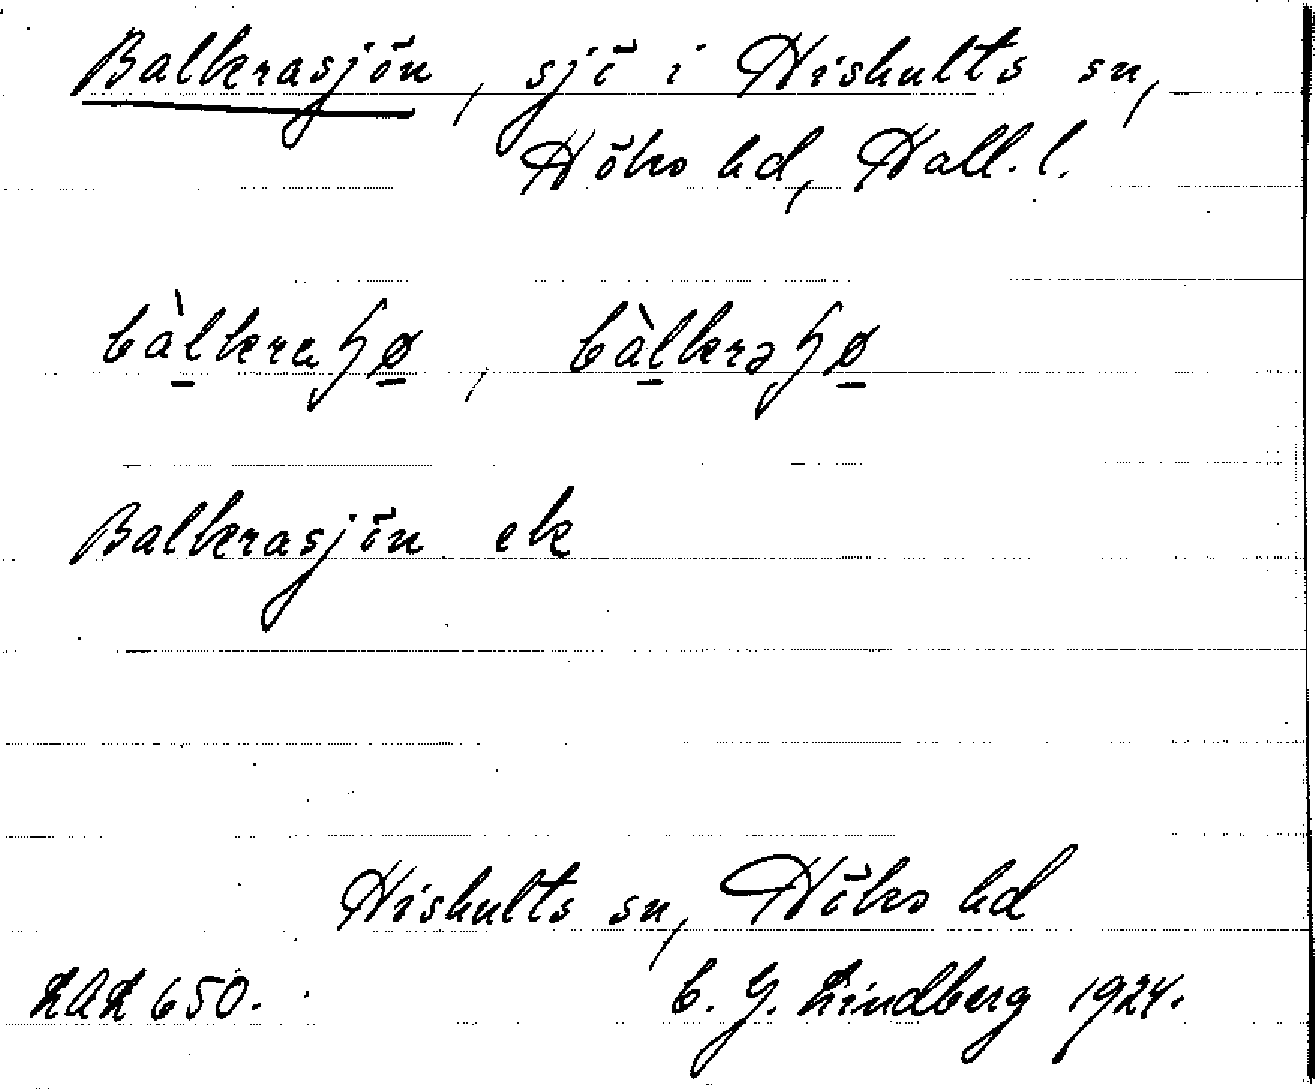 Balkrasjön, sjö i Hishults sn,
Höks hd, Hall. l.
bàlkraɧø, bàlkrəɧø
Balkrasjön ek
Hishults sn, Höks hd
LAL 650.
C. G. Lindberg 1924.